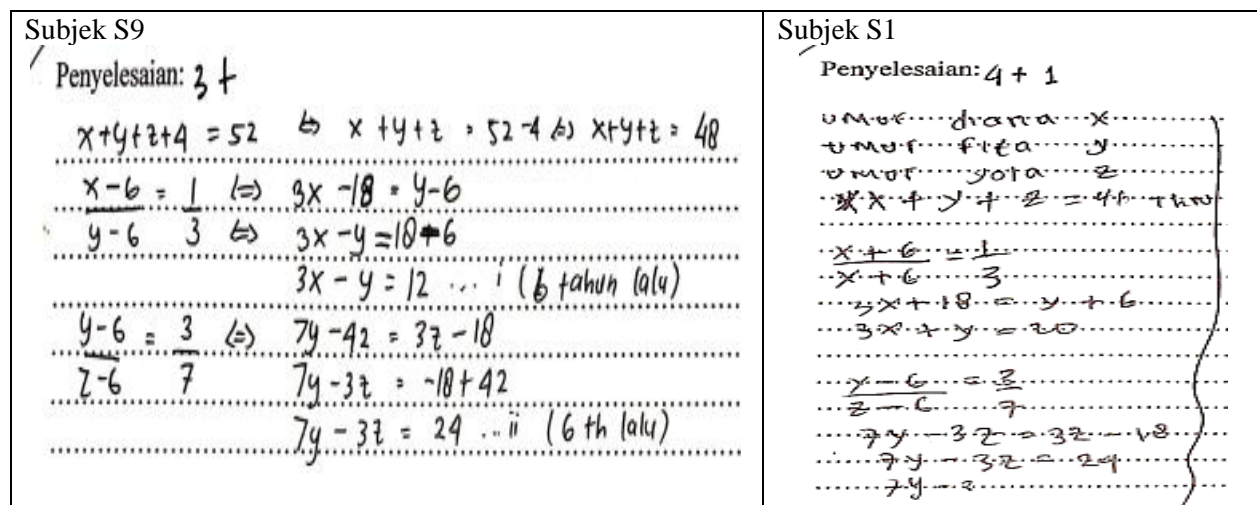 Subjek S9
Penyelesaian: 3 +
x+y+z+4 = 52 ⇔ x+y+z = 52-4 ⇔ x+y+z = 48
x-6/y-6 = 1/3 ⇔ 3x -18 = y-6
⇔ 3x-y = 18-6
3x - y = 12 ... i (6 tahun lalu)
y-6/z-6 = 3/7 ⇔ 7y-42 = 3z-18
7y-3z = -18+42
7y-3z = 24 ... ii (6 th lalu)
Subjek S1
Penyelesaian: 4 + 1
umur diana x
umur fita y
umur yota z
x + y + z =
x+6/x+6 = 1/3
3x+18 = y+6
3x+y = 20
y-6/z-6 = 3/7
7y-3z = 3z-18
7y-3z = 24
7y =